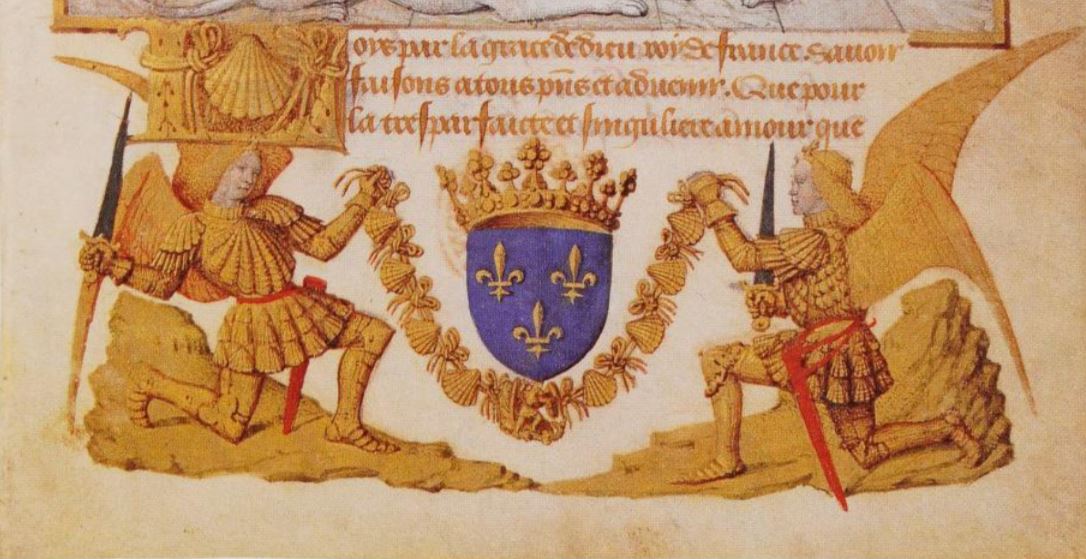 oys par la grace de dieu roi de france. Savoir
faisons a tous pñs et advenir. Que pour
la tresparfaicte et singuliere amour que